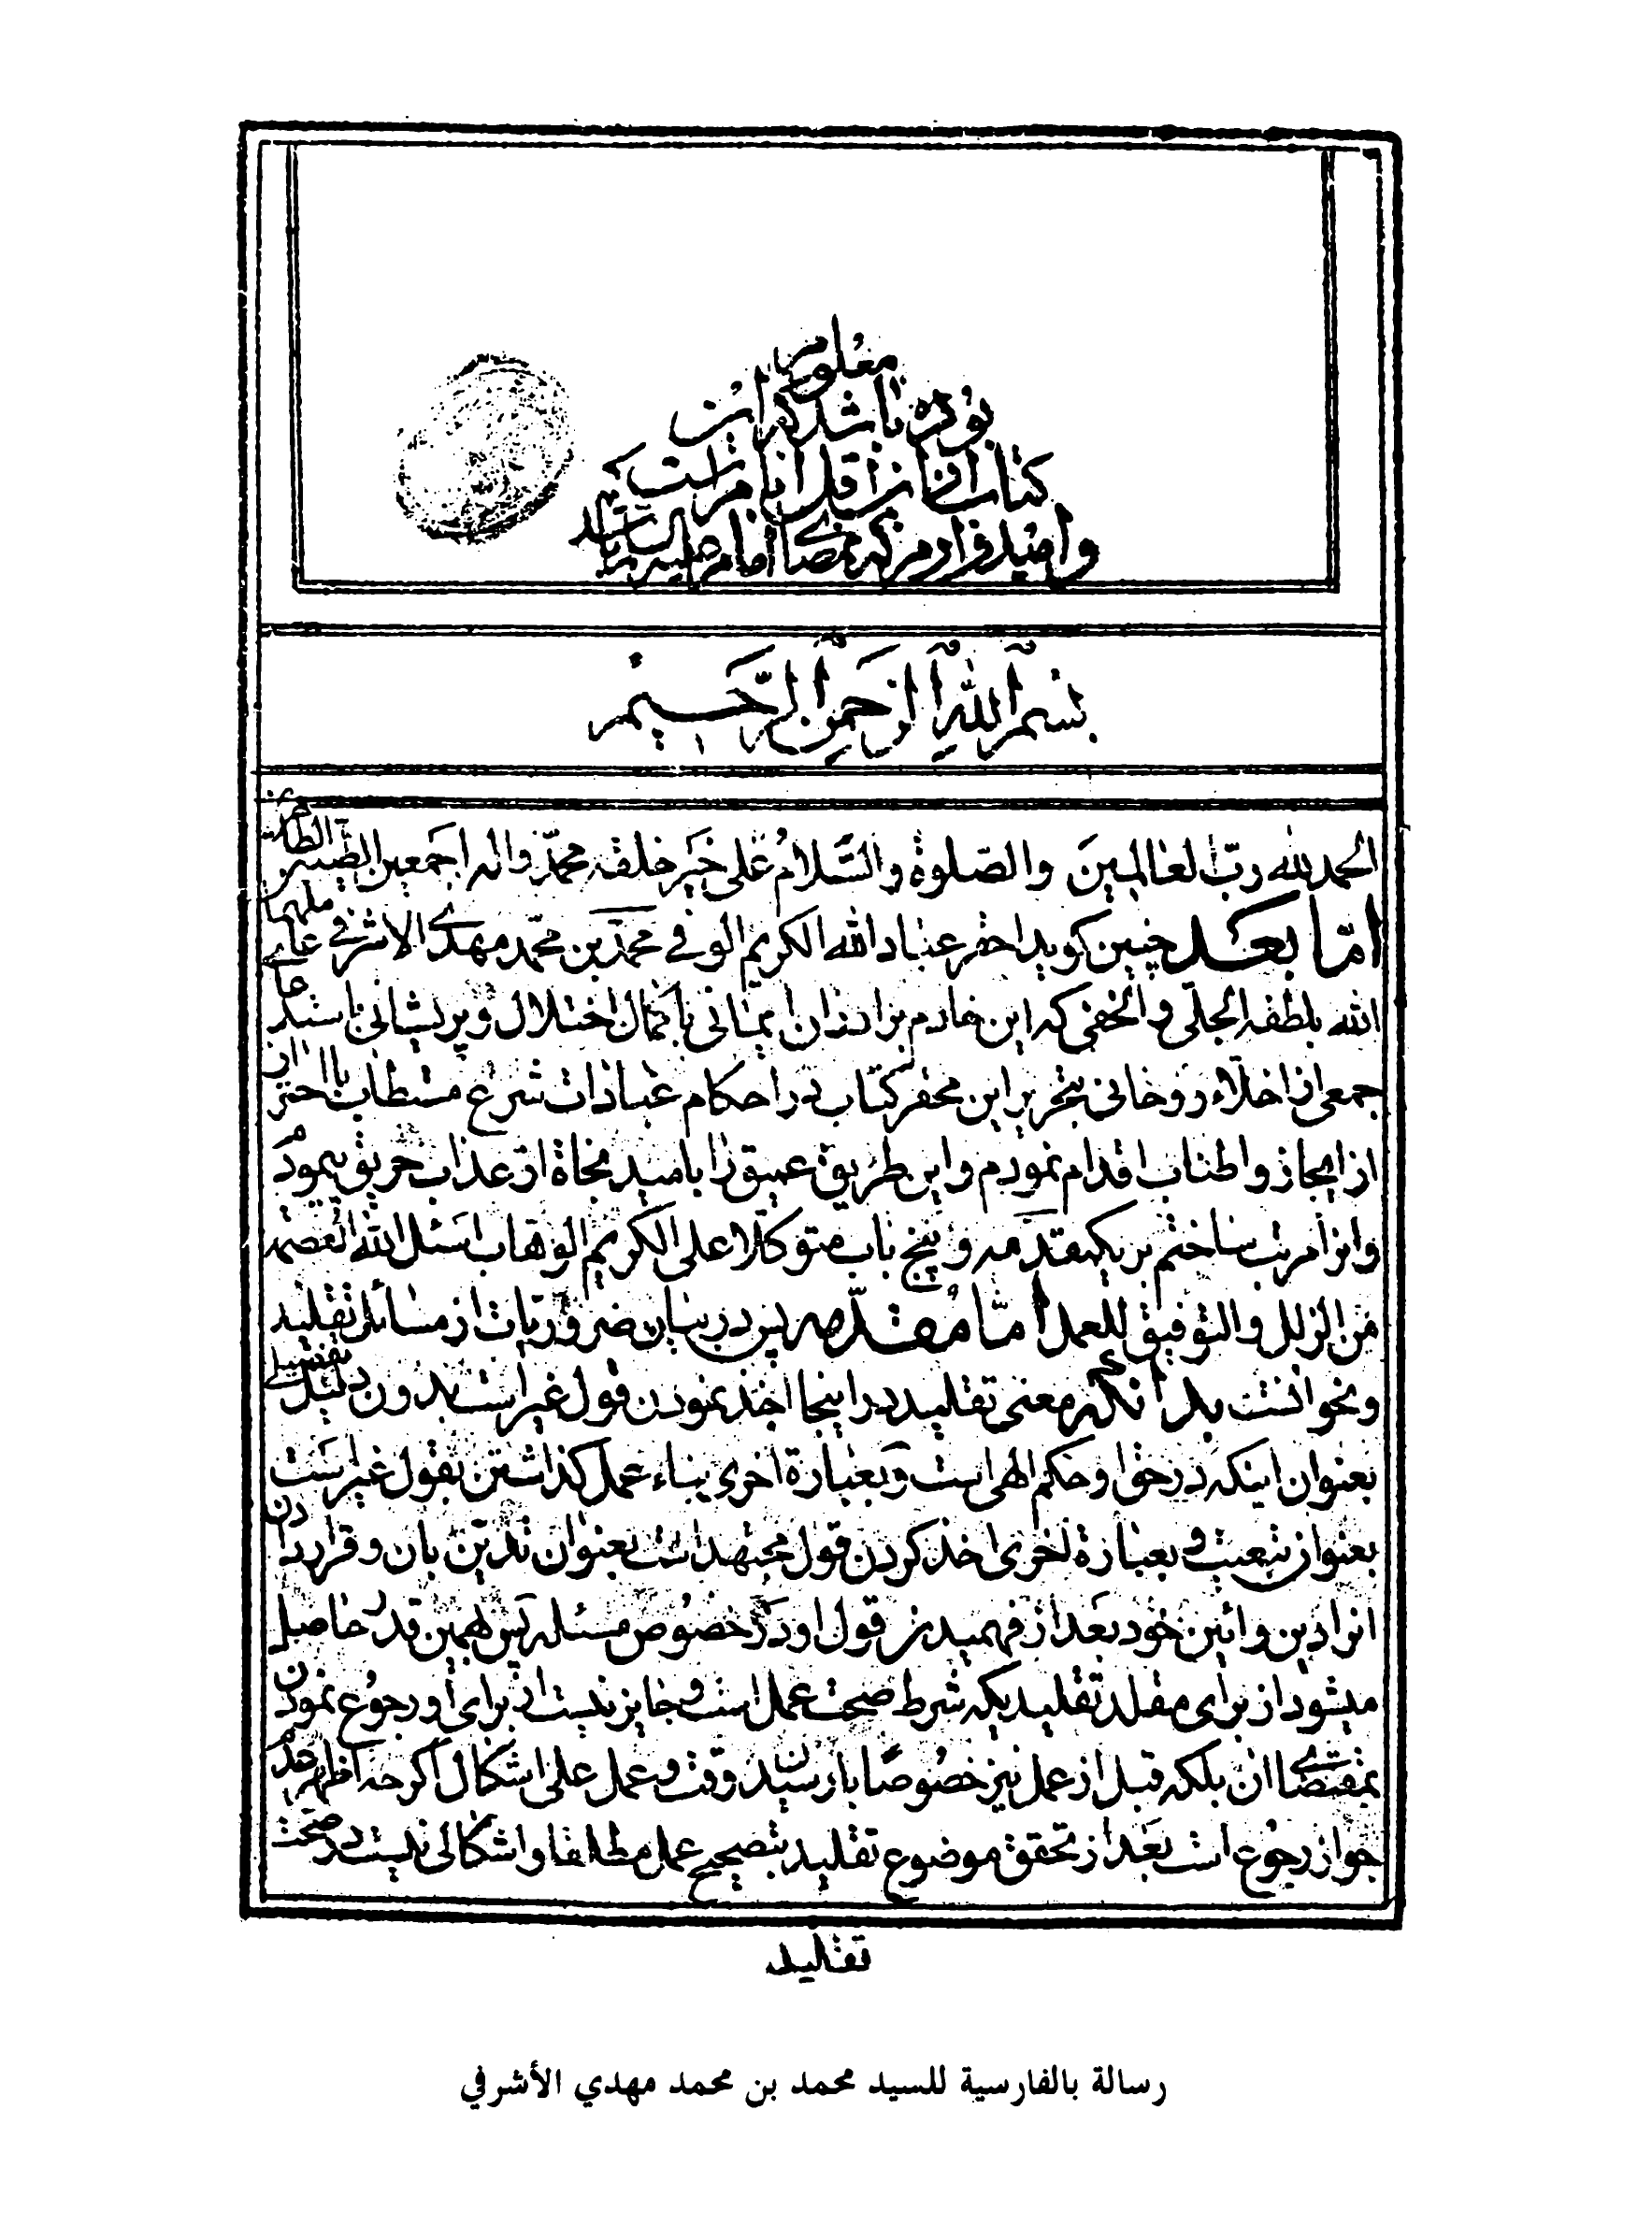 معلوم
بوده باشد که این
کتاب از اقل انام است که
و امید وارم که ممضای امام علیه السلام باشد
بسم الله الرحمن الرحیم
الحمد لله رب العالمین والصلوة والسلام علی خیر خلقه محمد واله اجمعین الطیبین الطاهرین
اما بعد چنین کوید احقر عباد الله الکریم الوفی محمد بن محمد مهدی الاشرفی عاملهما
الله بلطفه الجلی والخفی که این خادم برادران ایمانی با کمال اختلال و پریشانی باستدعای
جمعی از اخلاء روحانی بتحریر این محقر کتاب در احکام عبادات شرع مستطاب با احتراز
از ایجاز و اطناب اقدام نمودم و این طریق عمیق را بامید نجاة از عذاب حریق پیمودم
و انرا مرتب ساختم بر یکمقدمه و پنج باب متوکلا علی الکریم الوهاب اسئل الله العصمة
من الزلل والتوفیق للعمل اما مقدمه پس در بیان ضروریات از مسائل تقلید
و نحو انست بدانکه معنی تقلید در اینجا اخذ نمودن قول غیر است بدون دلیل تفصیلی
بعنوان اینکه در حق او حکم الهی است و بعبارة اخری بناء عمل کذاشتن بقول غیر است
بعنوان تبعیت و بعبارة اخری اخذ کردن قول مجتهد است بعنوان تدین بان و قرار دادن
انرا دین و ائین خود بعد از فهمیدن قول او در خصوص مسئله پس همین قدر حاصل
میشود از برای مقلد تقلیدیکه شرط صحت عمل است و جایز نیست از برای او رجوع نمودن
بمقتضای ان بلکه قبل از عمل نیز خصوصا با رسیدن وقت و عمل علی اشکال اکرچه اظهر عدم
جواز رجوع است بعد از تحقق موضوع تقلید بتصحیح عمل مطلقا و اشکالی نیست در صحت
تقلید
رسالة بالفارسية للسيد محمد بن محمد مهدي الأشرفي